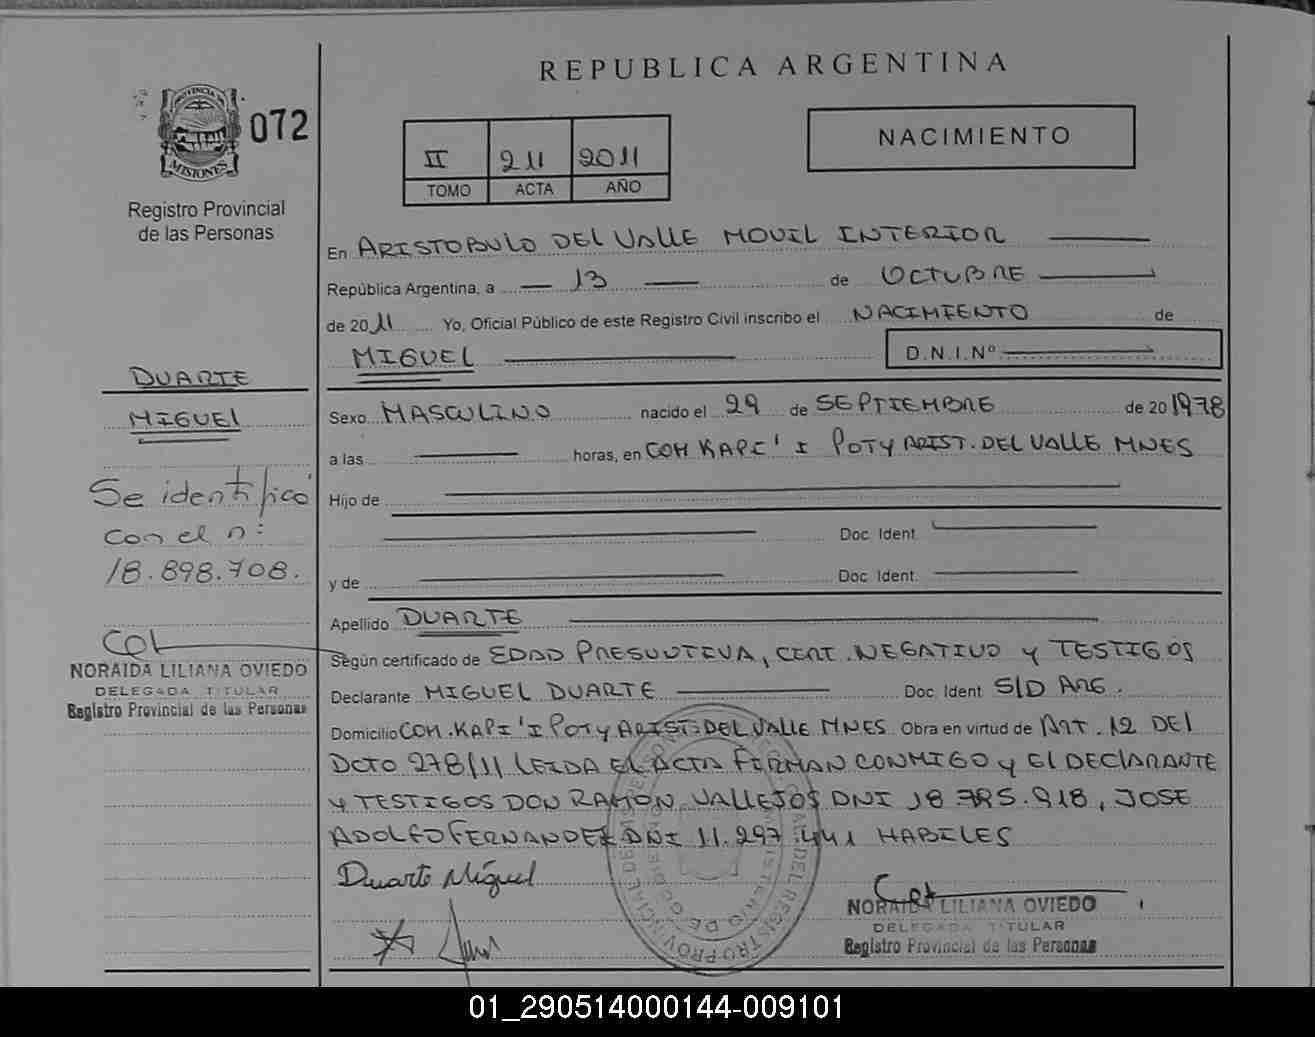 REPUBLICA ARGENTINA
PROVINCIA DE
MISIONES
072
Registro Provincial
de las Personas
II 211 2011
TOMO ACTA AÑO
NACIMIENTO
En ARISTOBULO DEL VALLE MOVIL INTERIOR
República Argentina, a 13 de OCTUBRE
de 2011 Yo, Oficial Público de este Registro Civil inscribo el NACIMIENTO de
MIGUEL D.N.I.Nº
DUARTE
MIGUEL
Sexo MASCULINO nacido el 29 de SEPTIEMBRE de 20 1978
a las horas, en COM KAPI' I POTY ARIST. DEL VALLE MNES
Se identificó
con el n:
18.898.708.
Hijo de
Doc. Ident.
y de Doc. Ident.
Apellido DUARTE
NORAIDA LILIANA OVIEDO
DELEGADA TITULAR
Registro Provincial de las Personas
Según certificado de EDAD PRESUNTIVA, CERT. NEGATIVO Y TESTIGOS
Declarante MIGUEL DUARTE Doc. Ident. S/D ARG.
Domicilio COM. KAPI'I POTY ARIST. DEL VALLE MNES Obra en virtud de ART. 12 DEL
DCTO 278/11 LEIDA EL ACTA FIRMAN CONMIGO Y EL DECLARANTE
Y TESTIGOS DON RAMON VALLEJOS DNI 18.785.918, JOSE
ADOLFO FERNANDEZ DNI 11.297.441 HABILES
Duarte Miguel
NORAIDA LILIANA OVIEDO
DELEGADA TITULAR
Registro Provincial de las Personas
01_290514000144-009101